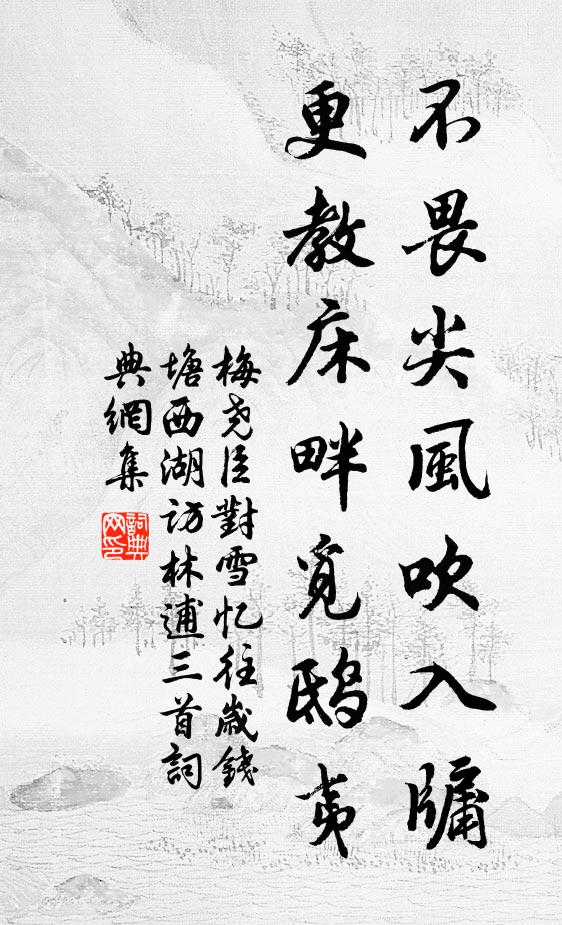 不畏尖風吹入牖
更教床畔覓鴟夷
梅尧臣對雪忆往歲錢
塘西湖访林逋三首詞
典網集
詞典
网印